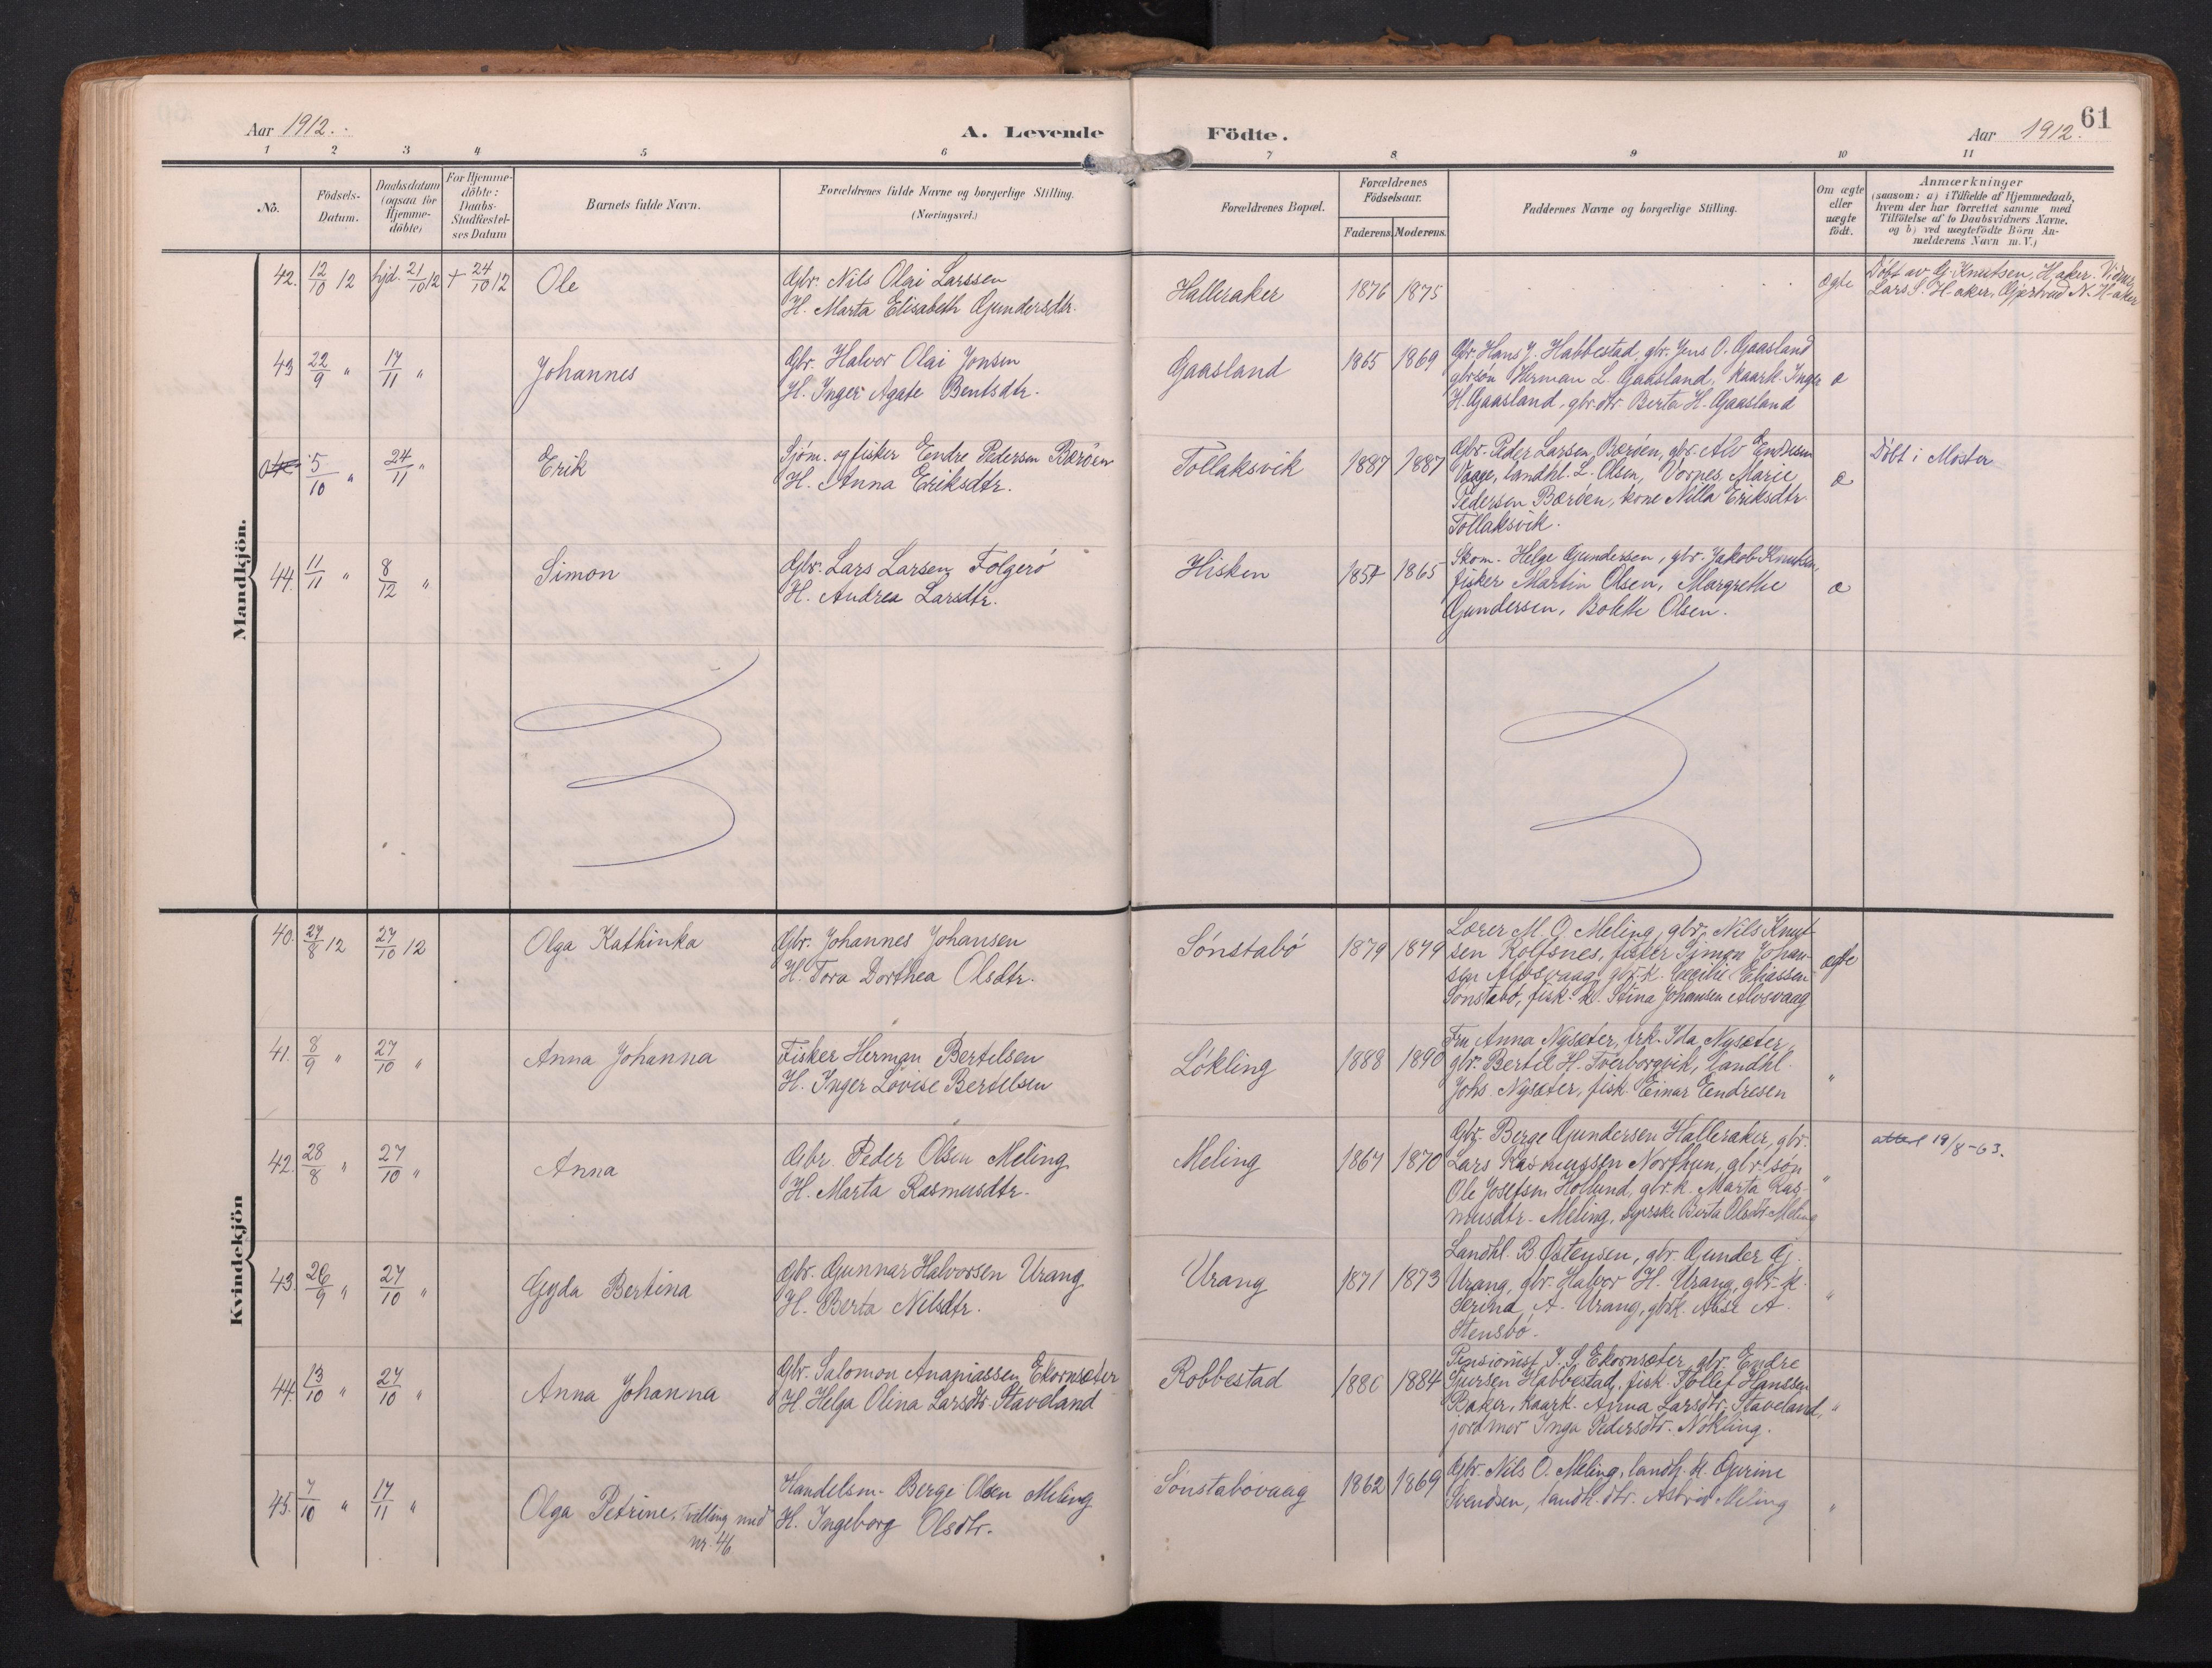 Aar 1912.
A. Levende Födte.
Aar 1912.
61
1 2 3 4 5 6 7 8 9 10 11
No.
Födsels-
Datum.
Daabsdatum
(ogsaa for
Hjemme-
döbte)
For Hjemme-
döbte:
Daabs-
Stadfæstel-
ses Datum
Barnets fulde Navn.
Forældrenes fulde Navne og borgerlige Stilling.
(Næringsvei.)
Forældrenes Bopæl.
Forældrenes
Födselsaar.
Faderens. Moderens.
Faddernes Navne og borgerlige Stilling.
Om ægte
eller
uægte
födt.
Anmærkninger
(saasom: a) i Tilfælde af Hjemmedaab,
hvem der har forrettet samme med
Tilföielse af to Daabsvidners Navne,
og b) ved uægtefödte Börn An-
melderens Navn m. V.)
Mandkjön.
42. 12/10 12 hjd. 21/10 12 + 24/10 12 Ole
Gbr. Nils Olai Larssen
H. Marta Elisabeth Gundersdtr.
Halleraker 1876 1875 ægte
Döbt av G. Knutsen, H.aker. Vidner
Lars S. H-aker, Gjertrud N. H-aker
43 22/9 " 17/11 " Johannes
Gbr. Halvor Olai Jonsen
H. Inger Agate Bentsdtr.
Gaasland 1865 1869
Gbr. Hans J. Habbestad, gbr. Jens O. Gaasland
gbrsøn Herman L. Gaasland, kaark. Inger
H. Gaasland, gbr.dtr. Berta H. Gaasland
æ
5/10 " 24/11 " Erik
Sjöm. og fisker Endre Pedersen Bæröen
H. Anna Eriksdtr.
Tollaksvik 1887 1887
Gbr. Peder Larsen Bæröen, gbr. Alv Endresen
Vaage, landhl. L. Olsen, Vornes, Marie
Pedersen Bæröen, kone Nilla Eriksdtr.
Tollaksvik.
æ
Döbt i Moster
44. 11/11 " 8/12 " Simon
Gbr. Lars Larsen Folgerö
H. Andrea Larsdtr.
Hisken 1854 1865
Skom. Helge Gundersen, gbr. Jakob Knutsen,
fisker Martin Olsen, Margrethe
Gundersen, Bolette Olsen.
æ
Kvindekjön
40. 27/8 12 27/10 12 Olga Kathinka
Gbr. Johannes Johansen
H. Tora Dorthea Olsdtr.
Sönstabö 1879 1879
Lærer M. O. Meling, gbr. Nils Knut-
sen Rolfsnes, fisker Simon Johan-
sen Alvsvaag, gbr.k. Cecilie Eliassen
Sönstabö, fisk. k. Stina Johansen Alvsvaag
ægte
41. 8/9 " 27/10 " Anna Johanna
Fisker Herman Bertelsen
H. Inger Lovise Bertelsen
Lökling 1888 1890
Fru Anna Nysæter, frk. Ida Nysæter,
gbr. Bertel H. Tverborgvik, landhl.
Johs. Nysæter, fisk. Einar Endresen
"
42. 28/8 " 27/10 " Anna
Gbr. Peder Olsen Meling
H. Marta Rasmusdtr.
Meling 1867 1870
Gbr. Berge Gundersen Halleraker, gbr.
Lars Rasmussen Northun, gbr. sön
Ole Josefsen Hollund, gbr.k. Marta Ras-
musdtr. Meling, syerske Berta Olsdtr. Meling
"
attest 19/8-63.
43. 26/9 " 27/10 " Gyda Bertina
Gbr. Gunnar Halvorsen Urang
H. Berta Nilsdtr.
Urang 1871 1873
Landhl. B. Östensen, gbr. Gunder G.
Urang, gbr. Halvor H. Urang, gbr. k.
Serina A. Urang, gbrk. A.
Stensbö.
"
44. 13/10 " 27/10 " Anna Johanna
Gbr. Salomon Ananiassen Ekornsæter
H. Helga Olina Larsdtr. Staveland
Robbestad 1886 1884
Pensionist I. S. Ekornsæter, gbr. Endre
Sjursen Habbestad, fisk. Tollef Hanssen
Baker, kaark. Anna Larsdtr. Staveland,
jordmor Inga Pedersdtr. Nökling.
"
45. 7/10 " 17/11 " Olga Petrine. Tvilling med
nr. 46
Handelsm. Berge Olsen Meling
H. Ingeborg Olsdtr.
Sönstabövaag 1862 1869
Gbr. Nils O. Meling, landh. k. Gurine
Svendsen, landh. dtr. Astrid Meling
"